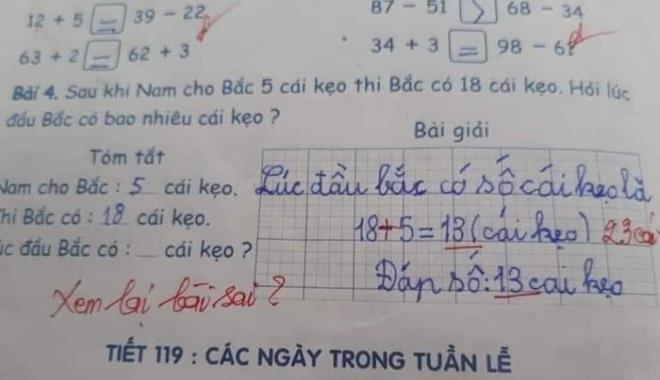 12 + 5 = 39 - 22
87 - 51 > 68 - 34
63 + 2 = 62 + 3
34 + 3 = 98 - 61
Bài 4. Sau khi Nam cho Bắc 5 cái kẹo thì Bắc có 18 cái kẹo. Hỏi lúc
đầu Bắc có bao nhiêu cái kẹo ?
Bài giải
Tóm tắt
Nam cho Bắc : 5 cái kẹo.
Thì Bắc có : 18 cái kẹo.
úc đầu Bắc có : __ cái kẹo ?
Lúc đầu bắc có số cái kẹo là
18+5=13(cái kẹo) 23 cá
Đáp số: 13 cái kẹo
Xem lại bài sai ?
TIẾT 119 : CÁC NGÀY TRONG TUẦN LỄ